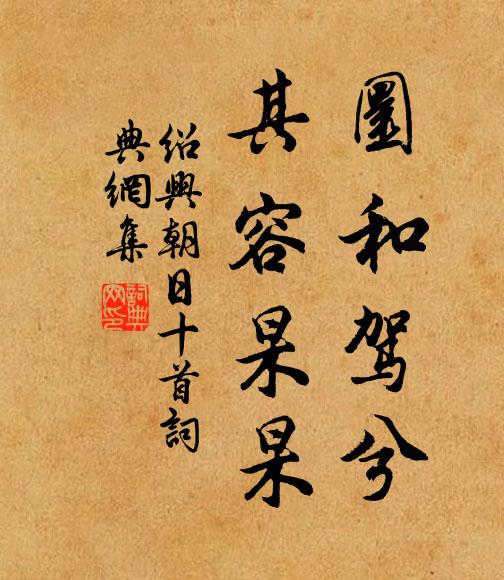 圖和駕兮
其容杲杲
紹興朝日十首詞
典網集
詞典
网印